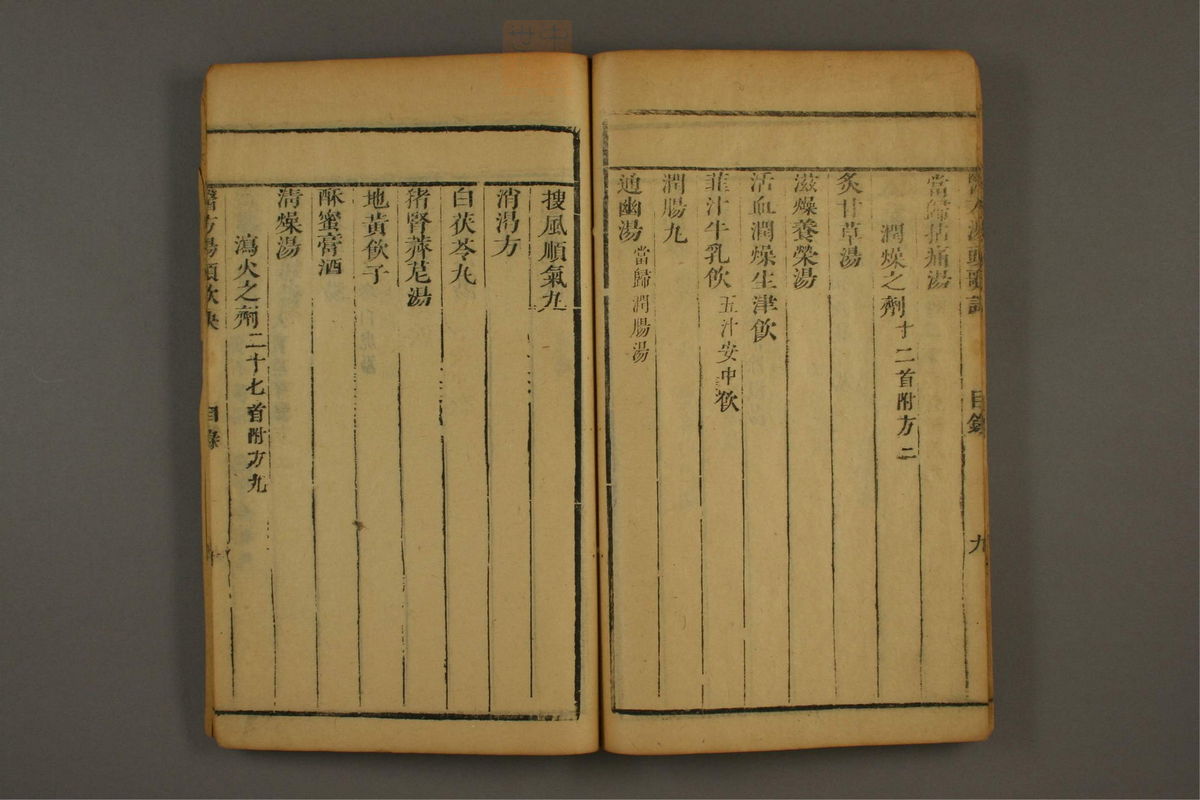 醫方湯頭歌訣 目錄 九
當歸拈痛湯
潤燥之劑 十二首附方二
炙甘草湯
滋燥養榮湯
活血潤燥生津飲
韭汁牛乳飲 五汁安中飲
潤腸丸
通幽湯 當歸潤腸湯
搜風順氣丸
消渴方
白茯苓丸
猪腎薺苨湯
地黃飲子
酥蜜膏酒
清燥湯
瀉火之劑 二十七首附方九
醫方湯頭歌訣 目錄